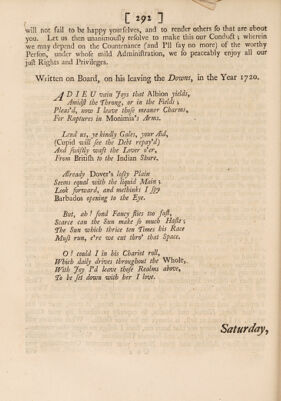 [ 292 ]
will not fail to be happy yourselves, and to render others so that are about
you. Let us then unanimously resolve to make this our Conduct; wherein
we may depend on the Countenance (and I'll say no more) of the worthy
Person, under whose mild Administration, we so peaceably enjoy all our
just Rights and Privileges.
Written on Board, on his leaving the Downs, in the Year 1720.
ADIEU vain Joys that Albion yields,
Amidst the Throng, or in the Fields;
Pleas'd, now I leave those meaner Charms,
For Raptures in Monimia's Arms.
Lend us, ye kindly Gales, your Aid,
(Cupid will see the Debt repay'd)
And swiftly waft the Lover o'er,
From British to the Indian Shore.
Already Dover's lofty Plain
Seems equal with the liquid Main;
Look forward, and methinks I spy
Barbados opening to the Eye.
But, ah! fond Fancy flies too fast,
Scarce can the Sun make so much Haste;
The Sun which thrice ten Times his Race
Must run, e're we cut thro' that Space.
O! could I in his Chariot roll,
Which daily drives throughout the Whole,
With Joy I'd leave those Realms above,
To be set down with her I love.
Saturday,